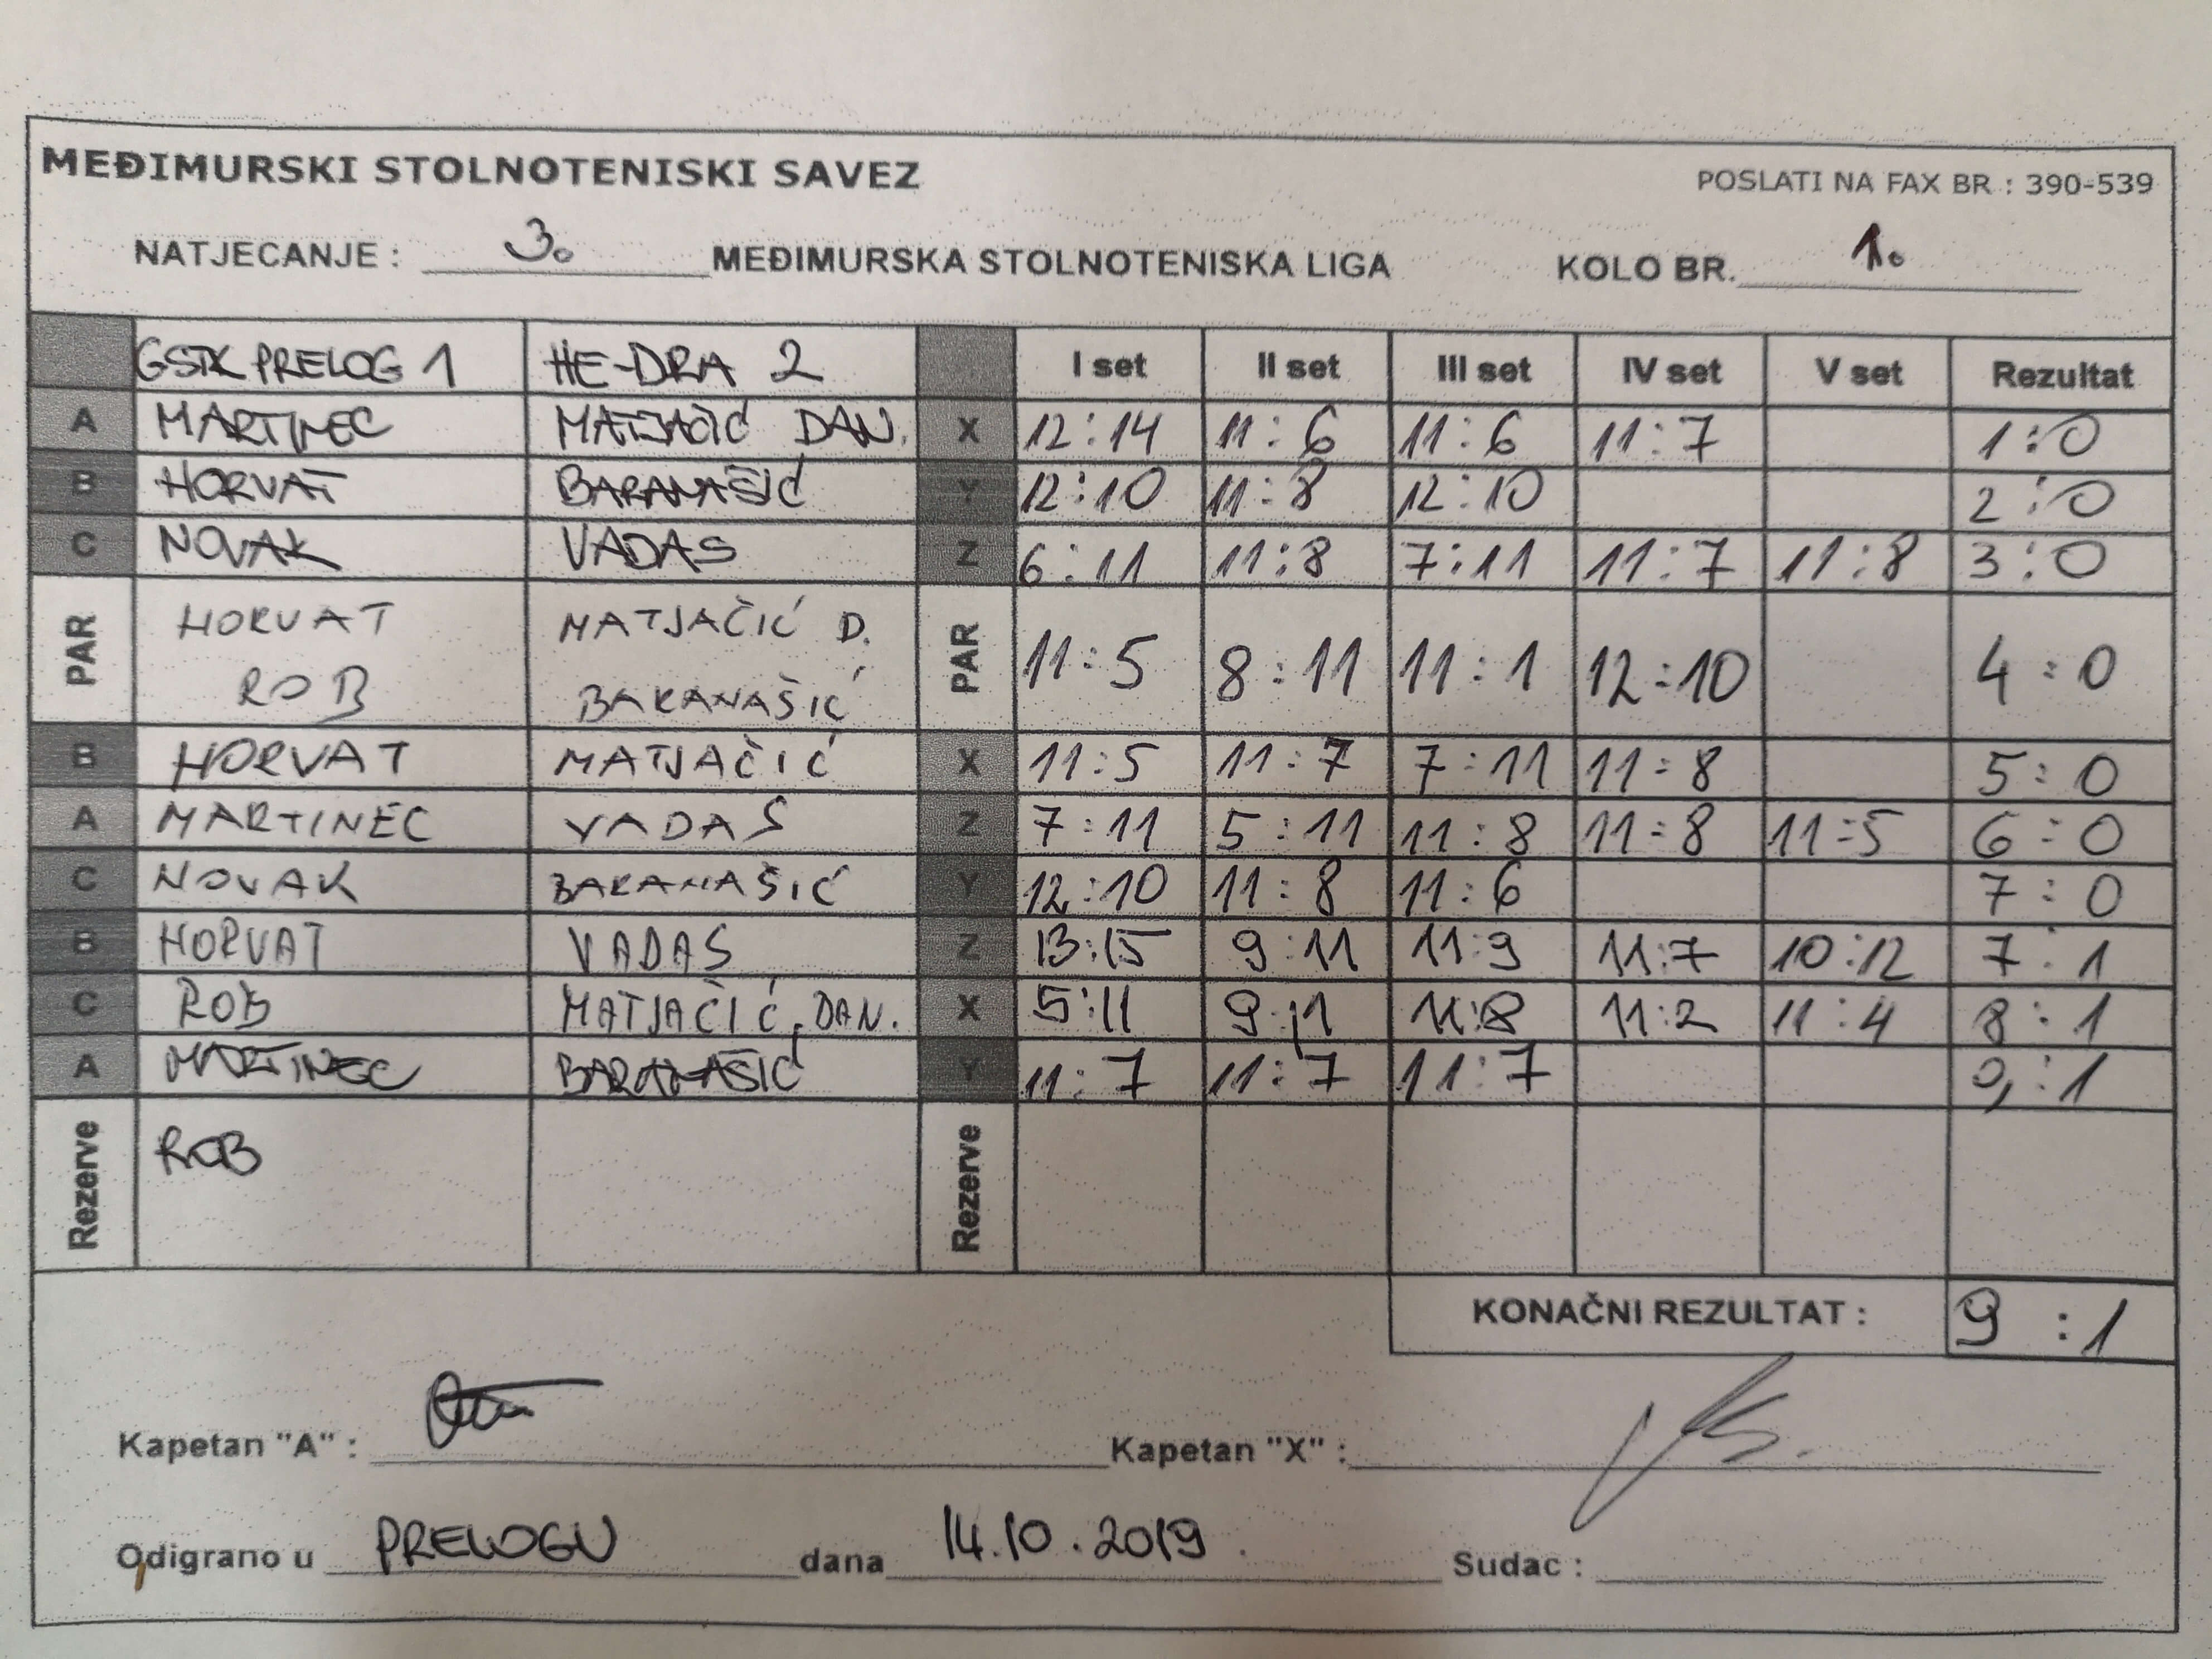 MEĐIMURSKI STOLNOTENISKI SAVEZ POSLATI NA FAX BR : 390-539
NATJECANJE : 3. MEĐIMURSKA STOLNOTENISKA LIGA KOLO BR. 1.
GSTK PRELOG 1 HE-DRA 2 I set II set III set IV set V set Rezultat
A MARTINEC MATJAČIĆ DAN. X 12:14 11:6 11:6 11:7 1:0
B HORVAT BARANAŠIĆ Y 12:10 11:8 12:10 2:0
C NOVAK VADAS Z 6:11 11:8 7:11 11:7 11:8 3:0
PAR HORVAT ROB MATJAČIĆ D. BARANAŠIĆ PAR 11:5 8:11 11:1 12:10 4:0
B HORVAT MATJAČIĆ X 11:5 11:7 7:11 11:8 5:0
A MARTINEC VADAŠ Z 7:11 5:11 11:8 11:8 11:5 6:0
C NOVAK BARANAŠIĆ Y 12:10 11:8 11:6 7:0
B HORVAT VADAŠ Z 13:15 9:11 11:9 11:7 10:12 7:1
C ROB MATJAČIĆ, DAN. X 5:11 9:11 11:8 11:2 11:4 8:1
A MARTINEC BARANAŠIĆ Y 11:7 11:7 11:7 9:1
Rezerve ROB Rezerve
KONAČNI REZULTAT : 9:1
Kapetan "A" : Kapetan "X" :
Odigrano u PRELOGU dana 14.10.2019. Sudac :